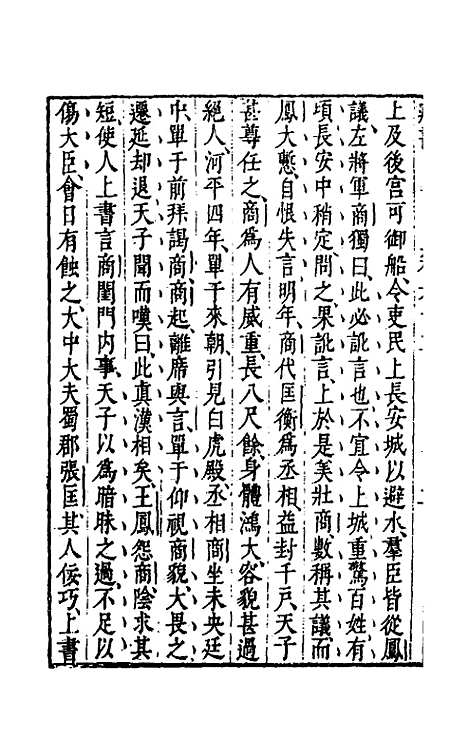 上及後宮可御船令吏民上長安城以避水羣臣皆從鳳
議左將軍商獨曰此必訛言也不宜令上城重驚百姓有
頃長安中稍定問之果訛言上於是美壯商數稱其議而
鳳大慙自恨失言明年商代匡衡爲丞相益封千戶天子
甚尊任之商爲人有威重長八尺餘身體鴻大容貌甚過
絕人河平四年單于來朝引見白虎殿丞相商坐未央廷
中單于前拜謁商商起離席與言單于仰視商貌大畏之
遷延却退天子聞而嘆曰此真漢相矣王鳳怨商陰求其
短使人上書言商閨門內事天子以爲暗昧之過不足以
傷大臣會日有蝕之大中大夫蜀郡張匡其人佞巧上書